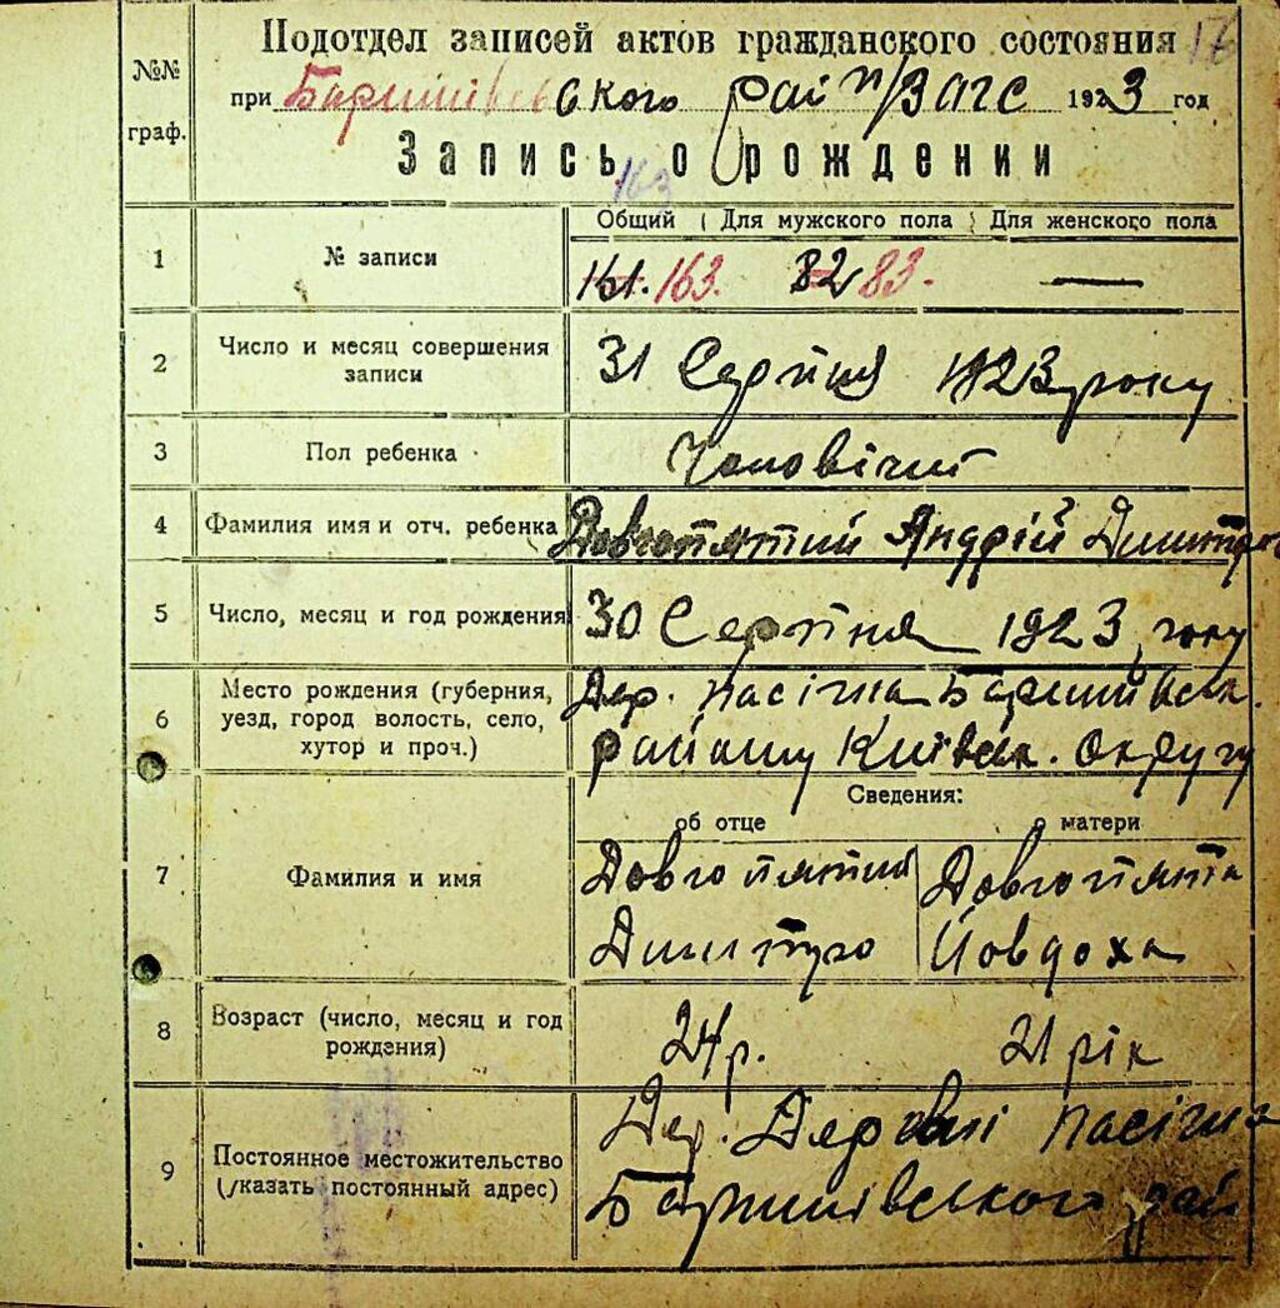 Подотдел записей актов гражданского состояния 17
№№ граф.
при Баришівського рай п/ЗАГС 1923 год
Запись о рождении
163
Общий Для мужского пола Для женского пола
1 № записи 161. 163. 82 83. —
2 Число и месяц совершения записи 31 Серпня 1923 року
3 Пол ребенка Чоловічий
4 Фамилия имя и отч. ребенка Довгопятий Андрій
5 Число, месяц и год рождения 30 Серпня 1923 року
6 Место рождения (губерния, Дер. Пасічна Баришівськ.
уезд, город волость, село, хутор и проч.) району Київськ. Округу
Сведения:
об отце о матери
7 Фамилия и имя Довгопятий Довгопята
Дмитро Йовдоха
8 Возраст (число, месяц и год рождения) 24 р. 21 рік
9 Постоянное местожительство Дер. Пасічна
(указать постоянный адрес) Баришівського рай